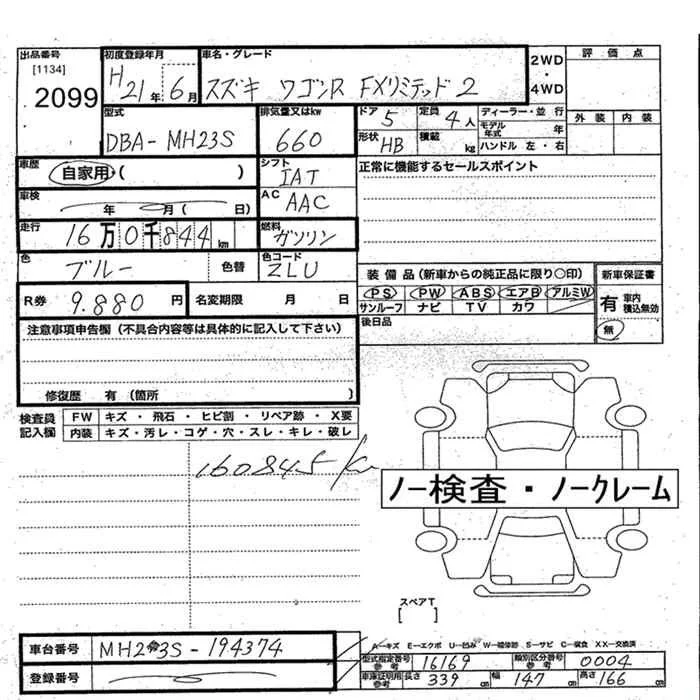 出品番号 初度登録年月 車名・グレード 2WD・4WD 評価点
[1134] 2099 H21年6月 スズキ ワゴンR FXリミテッド2
型式 排気量又はkw ドア 5 定員 4人 ディーラー・並行 外装 内装
DBA-MH23S 660 形状 HB 積載 kg モデル年式 年 ハンドル 左・右
車歴 自家用・( ) シフト IAT 正常に機能するセールスポイント
車検 年 月( 日) AC AAC
走行 16万0千844km 燃料 ガソリン
色 ブルー 色替 色コード ZLU 装備品(新車からの純正品に限り〇印) 新車保証書
R券 9.880円 名変期限 月 日 PS PW ABS エアB アルミW 有 車内積込無効
サンルーフ ナビ TV カワ 無
注意事項申告欄(不具合内容等は具体的に記入して下さい) 後日品
修復歴 有(箇所 )
検査員記入欄 FW キズ・飛石・ヒビ割・リペア跡・X要
内装 キズ・汚レ・コゲ・穴・スレ・キレ・破レ
160845
ノー検査・ノークレーム
スペアT
[ ]
車台番号 MH23S-194374 A−キズ E−エクボ U−凹み W−補修跡 S−サビ C−腐食 XX−交換済
型式指定番号参考 16169 類別区分番号参考 0004
登録番号 車庫証明用参考 長さ 339cm 幅 147cm 高さ 166cm